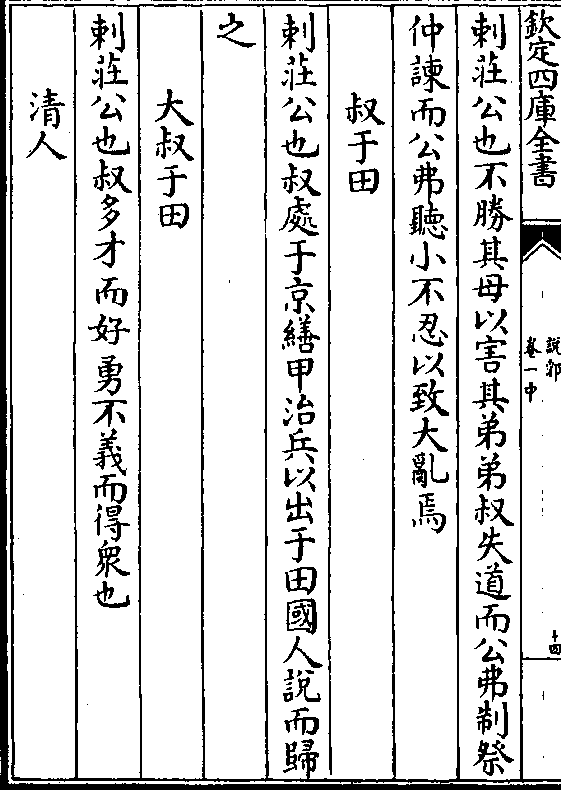 欽定四庫全書
説郛
卷一中
十四
刺莊公也不勝其母以害其弟弟叔失道而公弗制祭
仲諫而公弗聽小不忍以致大亂焉
叔于田
刺莊公也叔處于京繕甲治兵以出于田國人說而歸
之
大叔于田
刺莊公也叔多才而好勇不義而得衆也
清人